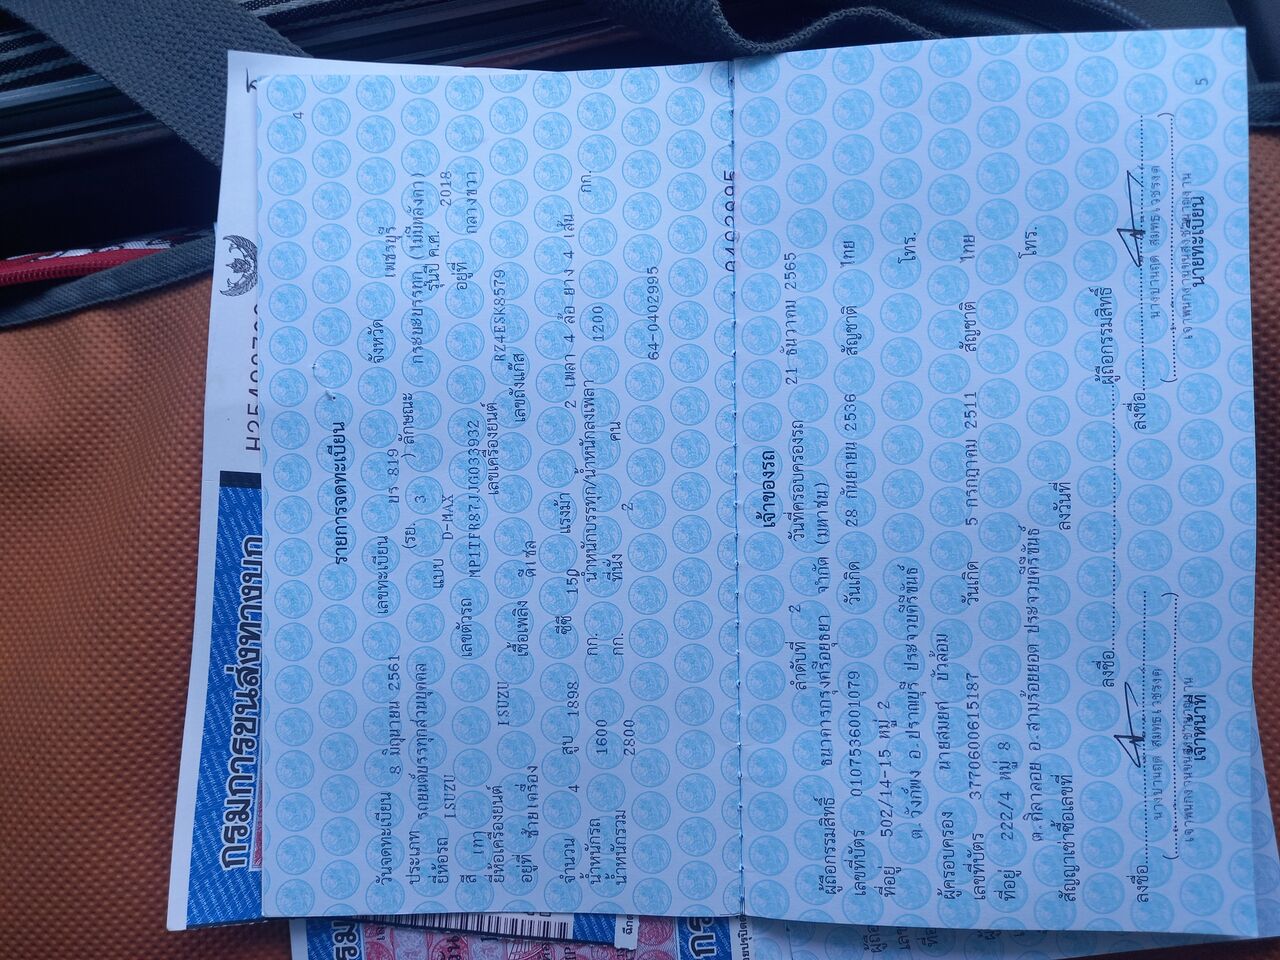 4
รายการจดทะเบียน
วันจดทะเบียน 8 มิถุนายน 2561 เลขทะเบียน บร 819 จังหวัด เพชรบุรี
ประเภท รถยนต์บรรทุกส่วนบุคคล (รย. 3 ) ลักษณะ กระบะบรรทุก (ไม่มีหลังคา)
ยี่ห้อรถ ISUZU แบบ D-MAX รุ่นปี ค.ศ. 2018
สี เทา เลขตัวรถ MP1TFR87JJG033932 อยู่ที่ กลางขวา
ยี่ห้อเครื่องยนต์ ISUZU เลขเครื่องยนต์ RZ4ESK8579
อยู่ที่ ซ้ายเครื่อง เชื้อเพลิง ดีเซล เลขถังแก๊ส
จำนวน 4 สูบ 1898 ซีซี 150 แรงม้า 2 เพลา 4 ล้อ ยาง 4 เส้น
น้ำหนักรถ 1600 กก. น้ำหนักบรรทุก/น้ำหนักลงเพลา 1200 กก.
น้ำหนักรวม 2800 กก. ที่นั่ง 2 คน
64-0402995
เจ้าของรถ
ลำดับที่ 2 วันที่ครอบครองรถ 21 ธันวาคม 2565
ผู้ถือกรรมสิทธิ์ ธนาคารกรุงศรีอยุธยา จำกัด (มหาชน)
เลขที่บัตร 0107536001079 วันเกิด 28 กันยายน 2536 สัญชาติ ไทย
ที่อยู่ 502/14-15 หมู่ 2 โทร.
ต.วังก์พง อ.ปราณบุรี ประจวบคีรีขันธ์
ผู้ครอบครอง นายสมยศ บัวล้อม
เลขที่บัตร 3770600615187 วันเกิด 5 กรกฎาคม 2511 สัญชาติ ไทย
ที่อยู่ 222/4 หมู่ 8 โทร.
ต.ศิลาลอย อ.สามร้อยยอด ประจวบคีรีขันธ์
สัญญาเช่าซื้อเลขที่ ลงวันที่
ลงชื่อ ผู้ถือกรรมสิทธิ์
ลงชื่อ ลงชื่อ
เจ้าหน้าที่ นายทะเบียน
5
กรมการขนส่งทางบก